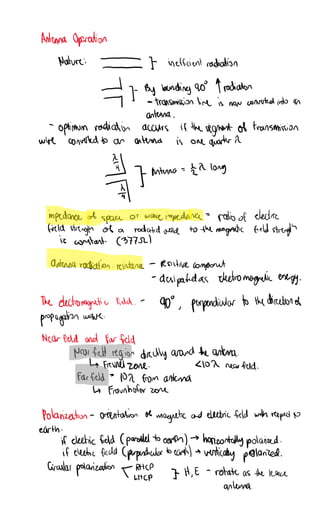 Antenna Operation.
Nature: } inefficient radiation
} - By bending 90° ↑ radiation
- transmission line is now converted into an
antenna.
- optimum radiation occurs if the segment of transmission
wire converted to an antenna is one quarter λ
λ/4
} Antenna = ½ λ long
λ/4
impedance of space or wave impedance = ratio of electric
field strength of a radiated wave to the magnetic field strength
is constant. (377Ω)
Antenna radiation resistance - Resistive component
- dissipated as electromagnetic energy.
The electromagnetic field. - 90°, perpendicular to the direction of
propagation wave.
Near field and Far field
Near field region directly around the antenna.
↳ Fresnel zone. <10λ near field.
Far field = 10λ from antenna
↳ Fraunhofer zone
Polarization - orientation of magnetic and electric field with respect to
earth.
if electric field (parallel to earth) → horizontally polarized.
if electric field (perpendicular to earth) → vertically polarized.
Circular polarization < RHCP
LHCP } H, E - rotate as the leave
antenna